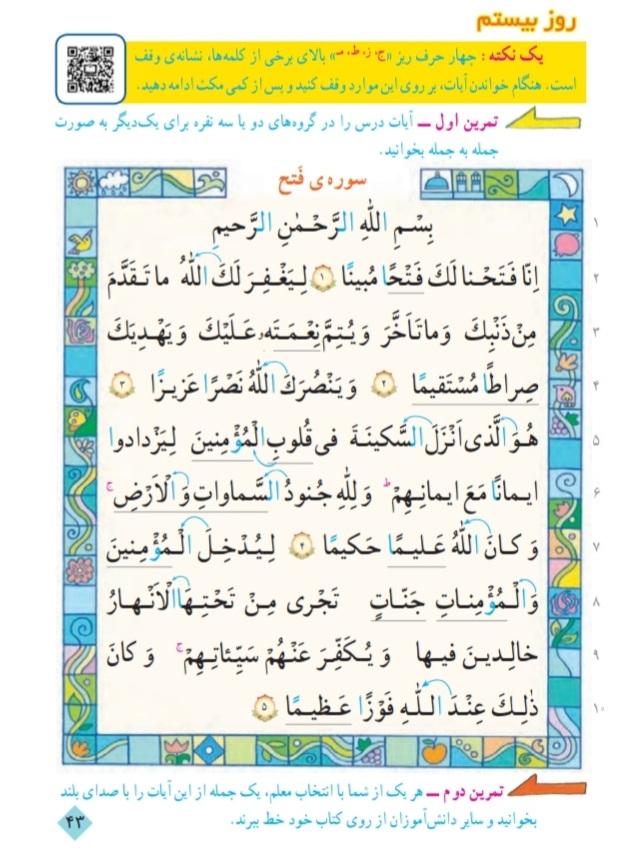 روز بیستم
یک نکته : چهار حرف ریز «ج، ز، ط، صـ» بالای برخی از کلمه‌ها، نشانه‌ی وقف
است. هنگام خواندن آیات، بر روی این موارد وقف کنید و پس از کمی مکث ادامه دهید.
تمرین اول ــ آیات درس را در گروه‌های دو یا سه نفره برای یک‌دیگر به صورت
جمله به جمله بخوانید.
سوره‌ی فَتح
بِسْمِ اللّٰهِ الرَّحْمٰنِ الرَّحیمِ ۱
اِنّا فَتَحْنا لَكَ فَتْحًا مُبینًا ۱ لِیَغْفِرَ لَكَ اللّٰهُ ما تَقَدَّمَ ۲
مِنْ ذَنْبِكَ وَ ما تَاَخَّرَ وَ یُتِمَّ نِعْمَتَه عَلَیْكَ وَ یَهْدِیَكَ ۳
صِراطًا مُسْتَقیمًا ۲ وَ یَنْصُرَكَ اللّٰهُ نَصْرًا عَزیزًا ۳ ۴
هُوَ الَّذی اَنْزَلَ السَّكینَةَ فی قُلوبِ الْمُؤْمِنینَ لِیَزْدادوا ۵
ایمانًا مَعَ ایمانِهِمْ ط وَ لِلّٰهِ جُنودُ السَّماواتِ وَ الْاَرْضِ ج ۶
وَ كانَ اللّٰهُ عَلیمًا حَكیمًا ۴ لِیُدْخِلَ الْمُؤْمِنینَ ۷
وَ الْمُؤْمِناتِ جَنّاتٍ تَجْری مِنْ تَحْتِهَا الْاَنْهارُ ۸
خالِدینَ فیها وَ یُكَفِّرَ عَنْهُمْ سَیِّئاتِهِمْ ج وَ كانَ ۹
ذٰلِكَ عِنْدَ اللّٰهِ فَوْزًا عَظیمًا ۵ ۱۰
تمرین دوم ــ هر یک از شما با انتخاب معلم، یک جمله از این آیات را با صدای بلند
بخوانید و سایر دانش‌آموزان از روی کتاب خود خط ببرند.
۴۳